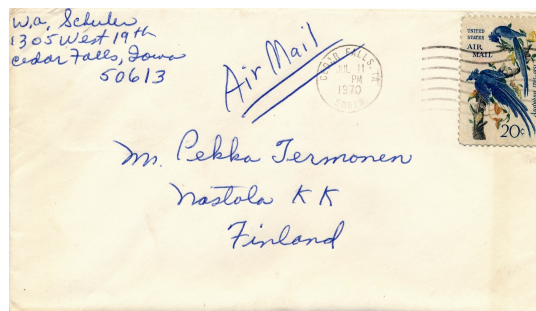 W.A. Schuler
1305 West 19th
Cedar Falls, Iowa
50613
Air Mail
CEDAR FALLS, IA
JUL 11
PM
1970
50613
UNITED
STATES
AIR
MAIL
20c
Mr. Pekka Termonen
Nastola KK
Finland